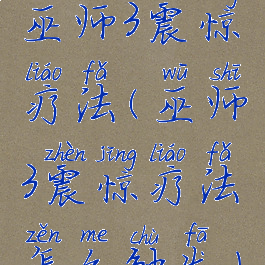 巫师3震惊
liáo fǎ wū shī
疗法(巫师
zhèn jīng liáo fǎ
3震惊疗法
zěn me chù fā
怎么触发)